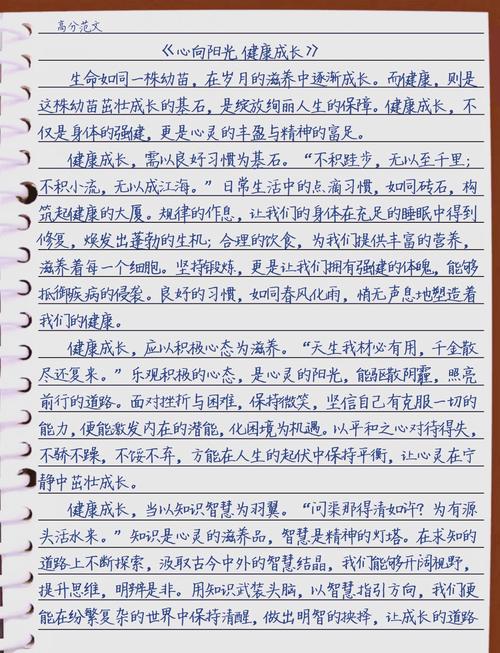 高分范文
《心向阳光 健康成长》
生命如同一株幼苗，在岁月的滋养中逐渐成长。而健康，则是
这株幼苗茁壮成长的基石，是绽放绚丽人生的保障。健康成长，不
仅是身体的强健，更是心灵的丰盈与精神的富足。
健康成长，需以良好习惯为基石。“不积跬步，无以至千里；
不积小流，无以成江海。”日常生活中的点滴习惯，如同砖石，构
筑起健康的大厦。规律的作息，让我们的身体在充足的睡眠中得到
修复，焕发出蓬勃的生机；合理的饮食，为我们提供丰富的营养，
滋养着每一个细胞。坚持锻炼，更是让我们拥有强健的体魄，能够
抵御疾病的侵袭。良好的习惯，如同春风化雨，悄无声息地塑造着
我们的健康。
健康成长，应以积极心态为滋养。“天生我材必有用，千金散
尽还复来。”乐观积极的心态，是心灵的阳光，能驱散阴霾，照亮
前行的道路。面对挫折与困难，保持微笑，坚信自己有克服一切的
能力，便能激发内在的潜能，化困境为机遇。以平和之心对待得失，
不骄不躁，不馁不弃，方能在人生的起伏中保持平衡，让心灵在宁
静中茁壮成长。
健康成长，当以知识智慧为羽翼。“问渠那得清如许？为有源
头活水来。”知识是心灵的滋养品，智慧是精神的灯塔。在求知的
道路上不断探索，汲取古今中外的智慧结晶，我们能够开阔视野，
提升思维，明辨是非。用知识武装头脑，以智慧指引方向，我们便
能在纷繁复杂的世界中保持清醒，做出明智的抉择，让成长的道路